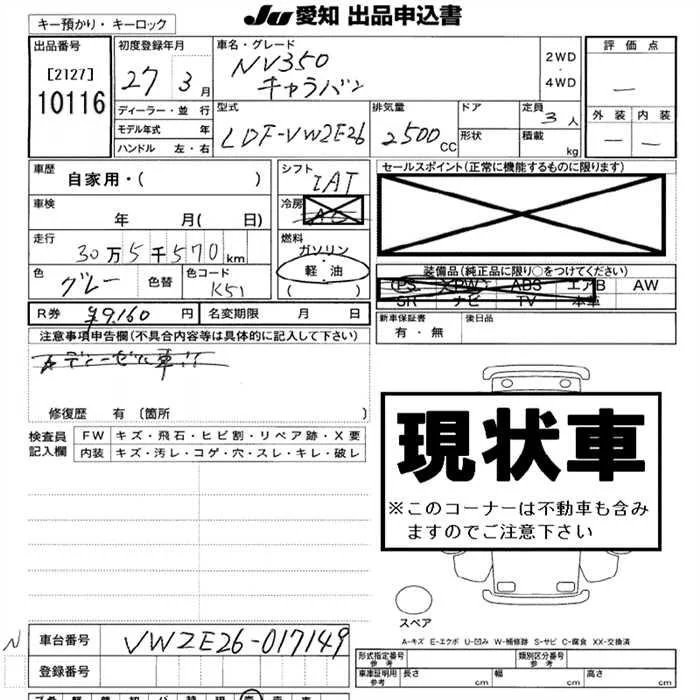 JU 愛知 出品申込書
キー預かり・キーロック
出品番号 初度登録年月 車名・グレード 評価点
[2127] 10116
27年3月 NV350 キャラバン 2WD・4WD ー
ディーラー・並行 型式 排気量 ドア 定員 3人 外装 内装
モデル年式 年 LDF-VW2E26 2500CC 形状 積載 kg ー ー
ハンドル 左・右
車歴 自家用・( ) シフト IAT セールスポイント(正常に機能するものに限ります)
車検 年 月( 日) 冷房 AC
走行 30万5千570km 燃料 ガソリン 軽油 ( )
色 グレー 色替 色コード K51 装備品(純正品に限り○をつけてください)
PS PW ABS エアB AW
SR ナビ TV 本革
R券 ¥9,160円 名変期限 月 日 新車保証書 有・無 後日品
注意事項申告欄(不具合内容等は具体的に記入して下さい)
☆ディーゼル車!!
修復歴 有〔箇所 〕
検査員記入欄 FW キズ・飛石・ヒビ割・リペア跡・X要
内装 キズ・汚レ・コゲ・穴・スレ・キレ・破レ
現状車
※このコーナーは不動車も含み
ますのでご注意下さい
スペア
A-キズ E-エクボ U-凹み W-補修跡 S-サビ C-腐食 XX-交換済
N 車台番号 VW2E26-017149
登録番号
形式指定番号 参考 類別区分番号 参考
車庫証明用 参考 長さ cm 幅 cm 高さ cm